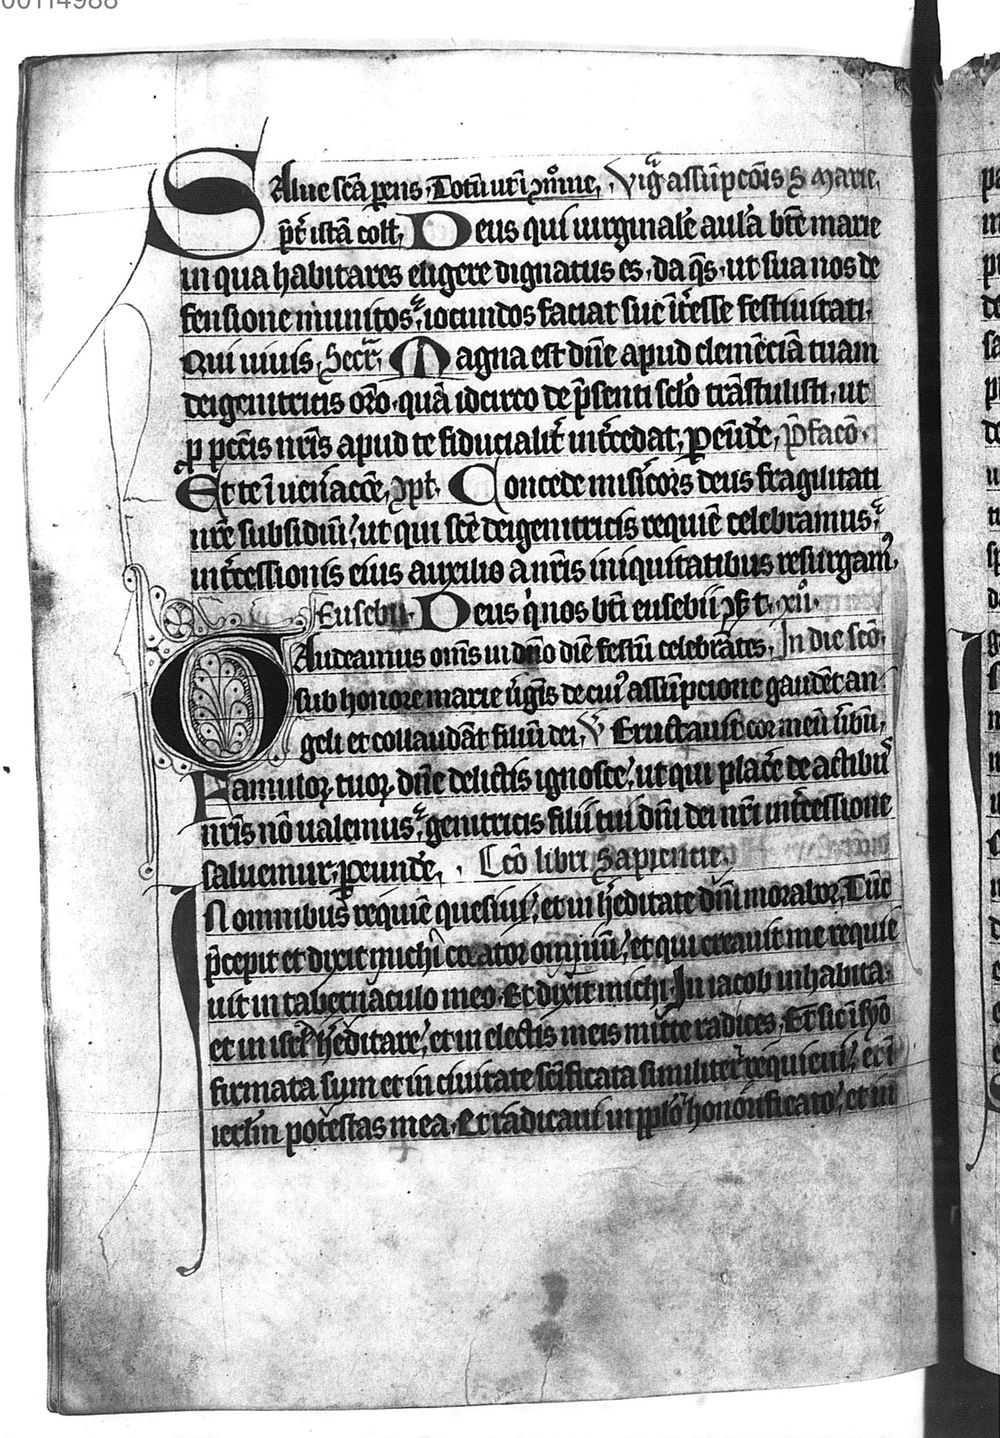 00114988
SAlue scā pens. Totū ut ī ꝯmōne, Vigª assūpcōis S Marie,
p̄t̄ istā coll, Deus qui uirginalē aulā btē marie
in qua habitares eligere dignatus es, da q̄s, ut sua nos de
fensione munitos, iocundos faciat sue īt̄esse festiuitati,
Qui uiuis, Secr̄ Magna est dn̄e apud clemēciā tuam
deigenitricis orō, quā idcirco de p̄senti sclō trāstulisti, ut
ꝓ pctīs nrīs apud te fiducialit̄ int̄cedat, ꝑ eūdē, P̄facō
Et te ī uen̄accōe, ꝯpl. Concede mis̄icors deus fragilitati
nrē subsidiū, ut qui scē deigenitricis requiē celebramus,
int̄cessionis eius auxilio a nrīs iniquitatibus resurgam᷒,
Eusebii. Deus q̇ nos btī eusebii ꝯf t. xii.
GAudeamus om̄s in dn̄o diē festū celebrātes, In die scō
sub honore marie ūgīs de cui᷒ assūpcione gaudēt an
geli et collaudāt filiū dei, V̄ Eructauit cor meū ūbū,
Famuloꝝ tuoꝝ dn̄e delictis ignosce, ut qui placē de actib᷒
nrīs nō ualemus, genitricis filii tui dn̄i dei nrī int̄cessione
saluemur, ꝑ eundē, Lcō libri Sapientie,
IN omnibus requiē quesiui, et in h̄editate dn̄i morabor, Tūc
p̄cepit et dixit michi creator omniū, et qui creauit me requie
uit in tabernaculo meo. Et dixit michi. In iacob inhabita
et in isrl̄ h̄editare, et in electis meis mitte radices, Et sic ī syō
firmata sum et in ciuitate scīficata similiter requieui, et ī
ierlm̄ potestas mea. Et radicaui in pplō honorificato, et in